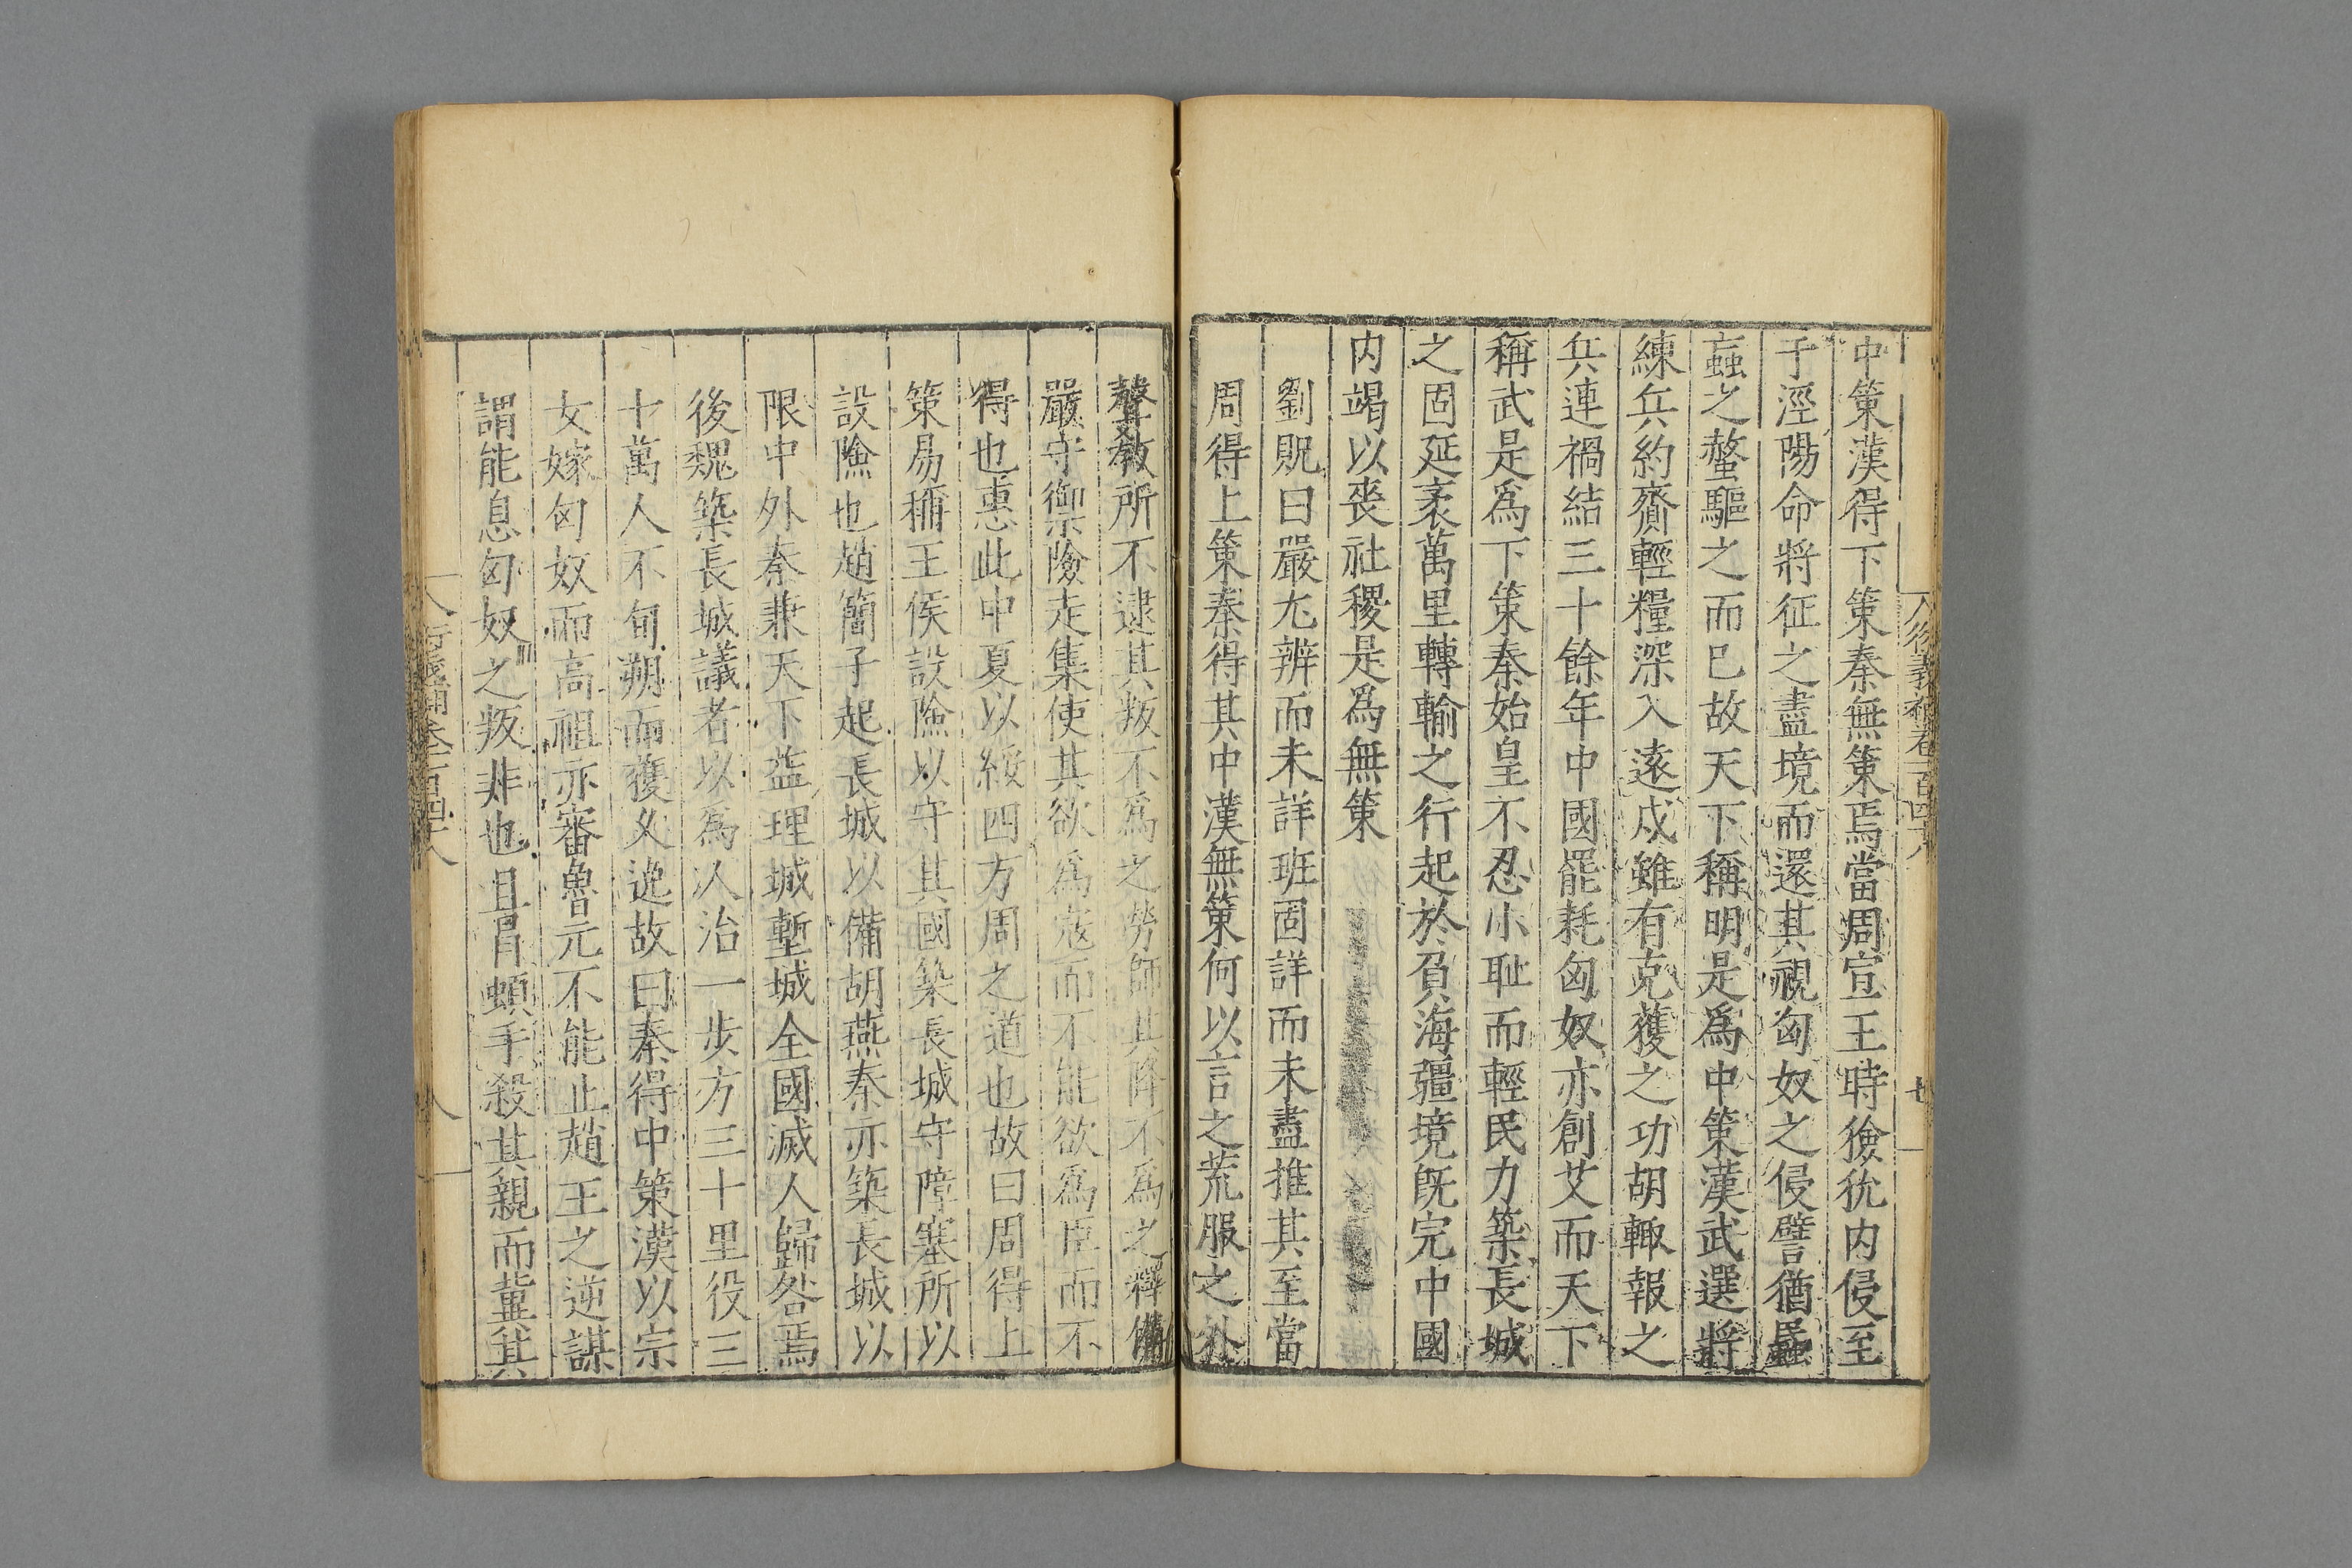 中策漢得下策秦無策焉當周宣王時獫狁内侵至
于涇陽命將征之盡境而還其視匈奴之侵譬猶蟁
蝱之螫驅之而已故天下稱明是爲中策漢武選將
練兵約齎輕糧深入遠戍雖有克獲之功胡輙報之
兵連禍結三十餘年中國罷耗匈奴亦創艾而天下
稱武是爲下策秦始皇不忍小耻而輕民力築長城
之固延袤萬里轉輸之行起於負海疆境既完中國
内竭以喪社稷是爲無策
劉貺曰嚴尤辨而未詳班固詳而未盡推其至當
周得上策秦得其中漢無策何以言之荒服之外
聲敎所不逮其叛不爲之勞師其降不爲之釋備
嚴守禦險走集使其欲爲寇而不能欲爲臣而不
得也惠此中夏以綏四方周之道也故曰周得上
策易稱王侯設險以守其國築長城守障塞所以
設險也趙簡子起長城以備胡燕秦亦築長城以
限中外秦兼天下益理城塹城全國滅人歸咎焉
後魏築長城議者以爲人治一步方三十里役三
十萬人不旬朔而獲久逸故曰秦得中策漢以宗
女嫁匈奴而高祖亦審魯元不能止趙王之逆謀
謂能息匈奴之叛非也且冒頓手殺其親而冀其